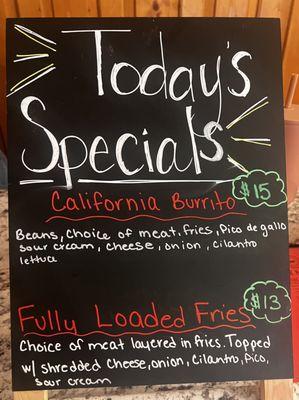 Today's
Specials
California Burrito
$15
Beans, Choice of meat. fries, Pico de gallo
sour cream, cheese, onion, cilanto
lettuce
Fully Loaded Fries
$13
Choice of meat layered in fries. Topped
w/ shredded cheese, onion, Cilantro, Pico,
sour cream